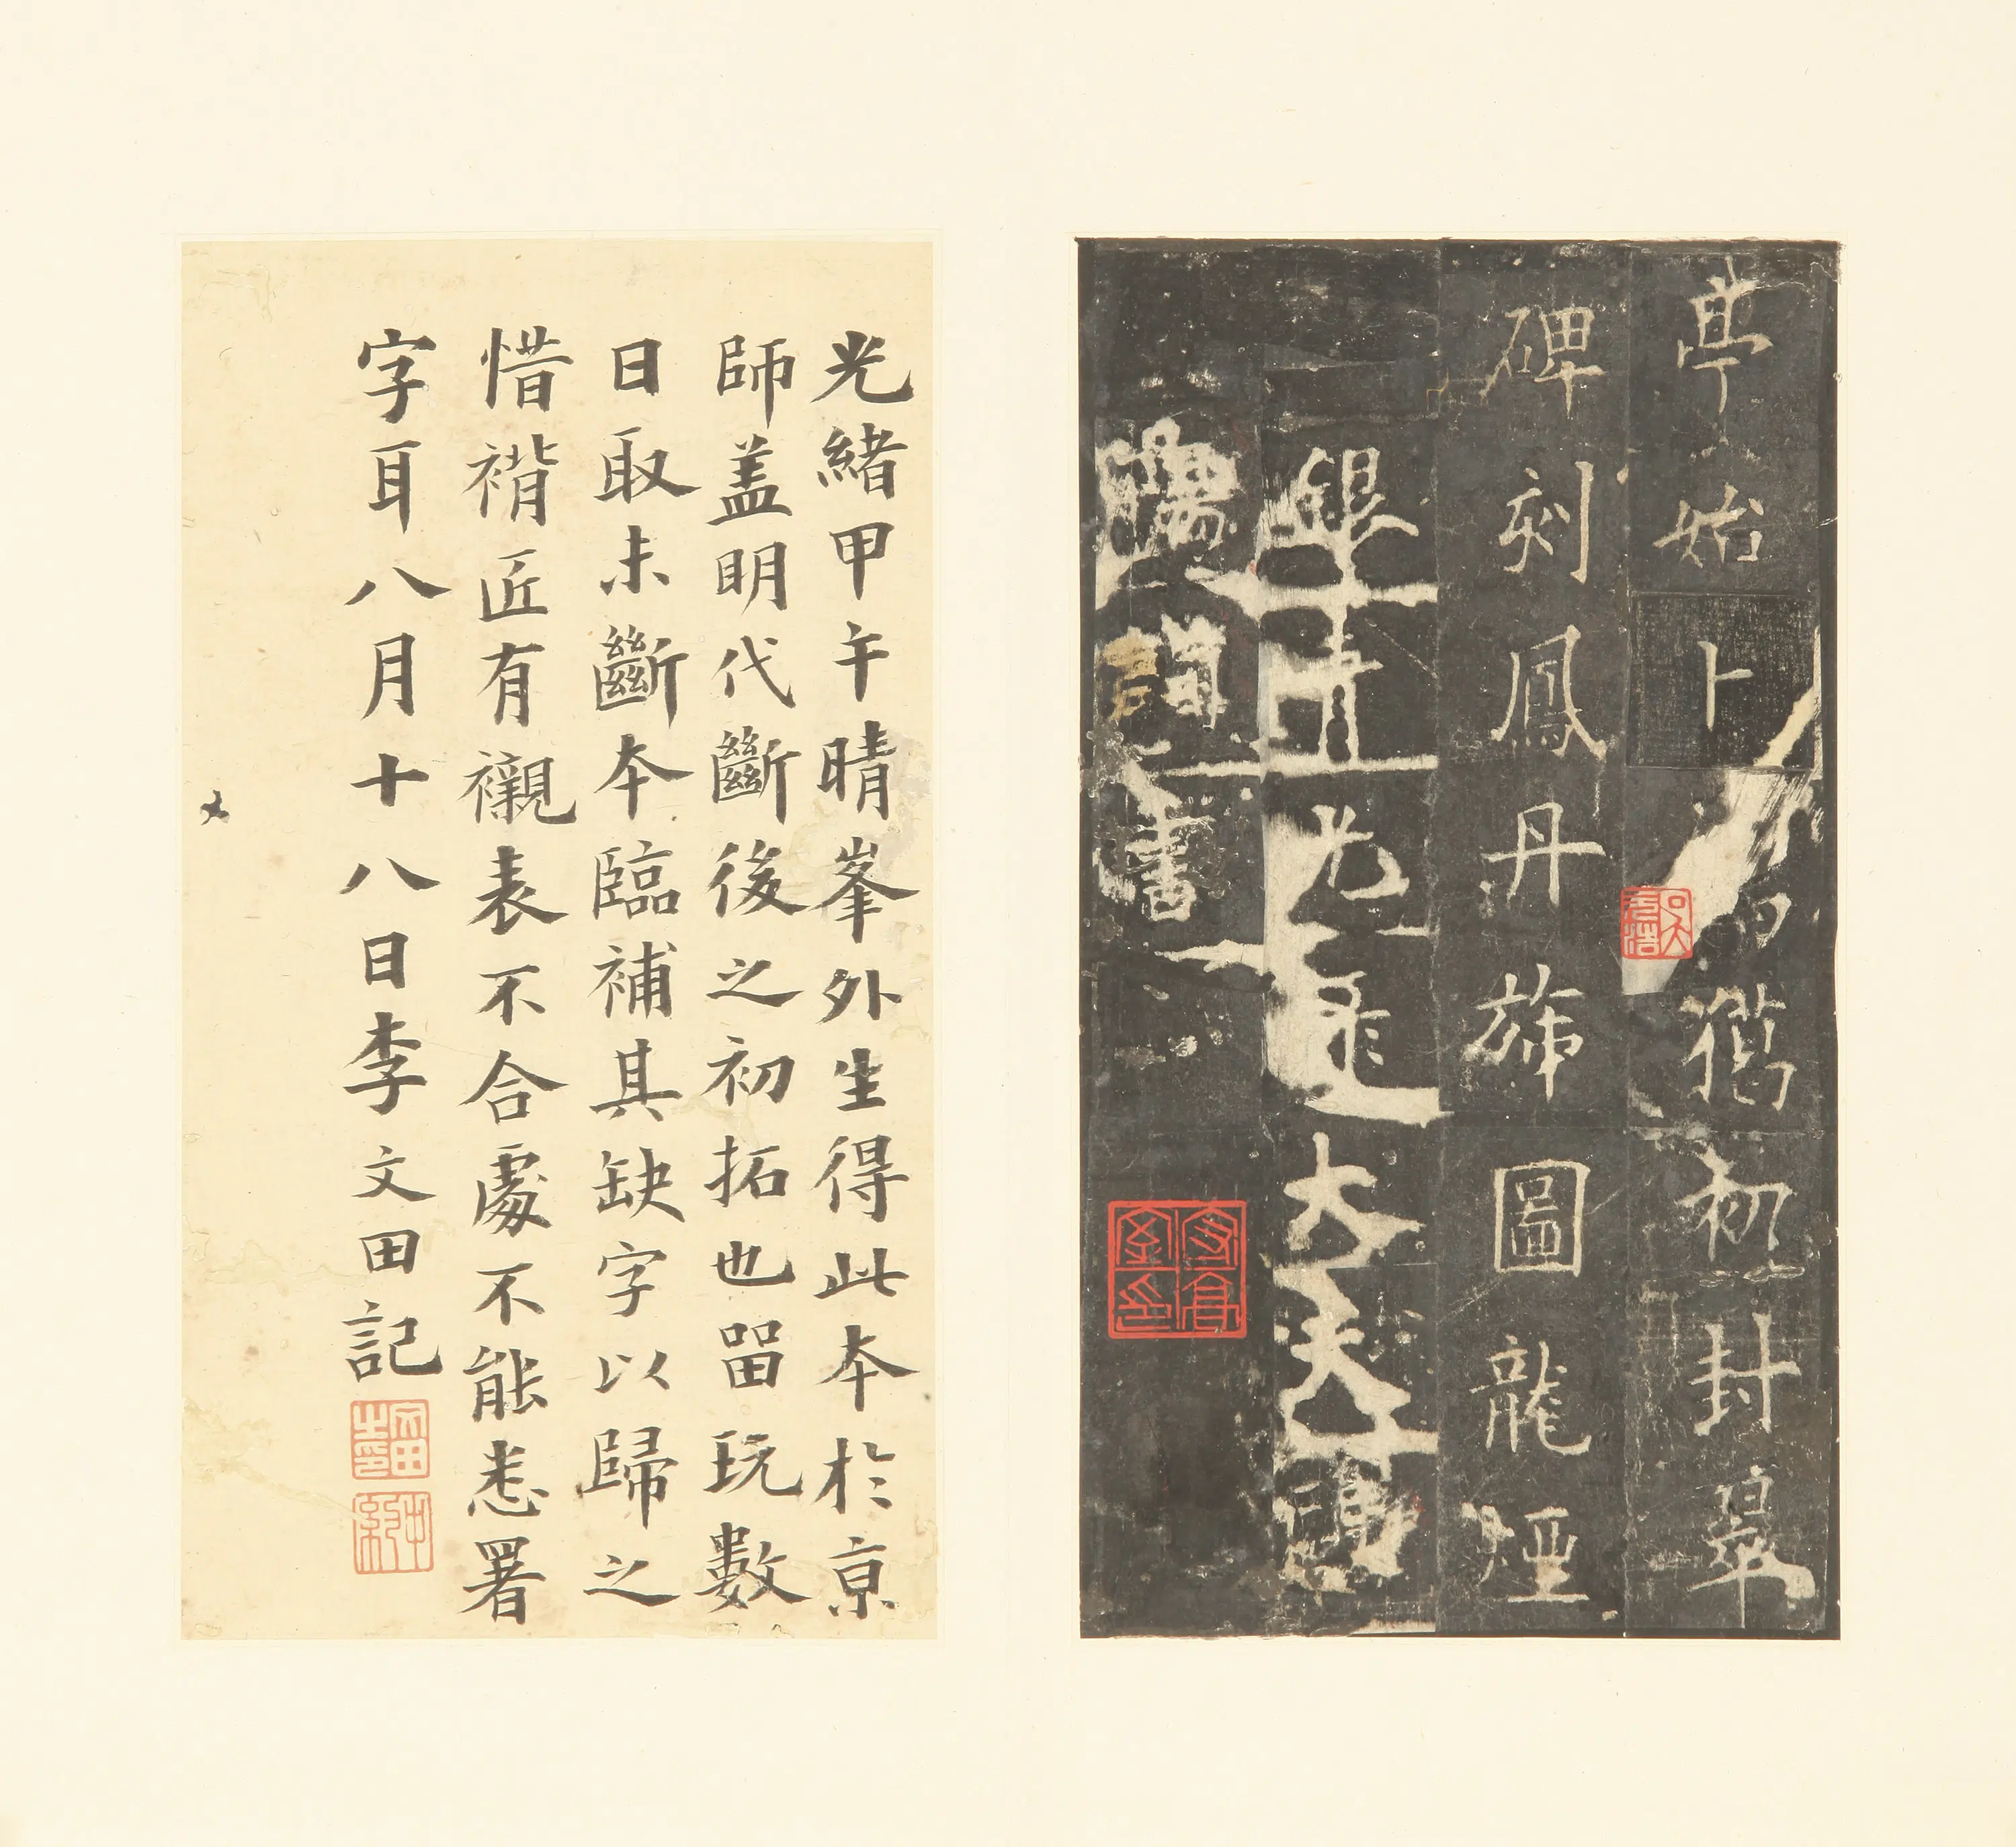 亭始卜獦初封翠
碑刻鳳丹旐圖龍煙
銀青光祿大夫歐
陽詢書
光緒甲午晴峯外生得此本於京
師蓋明代斷後之初拓也留玩數
日取未斷本臨補其缺字以歸之
惜褙匠有襯表不合處不能悉署
字耳八月十八日李文田記